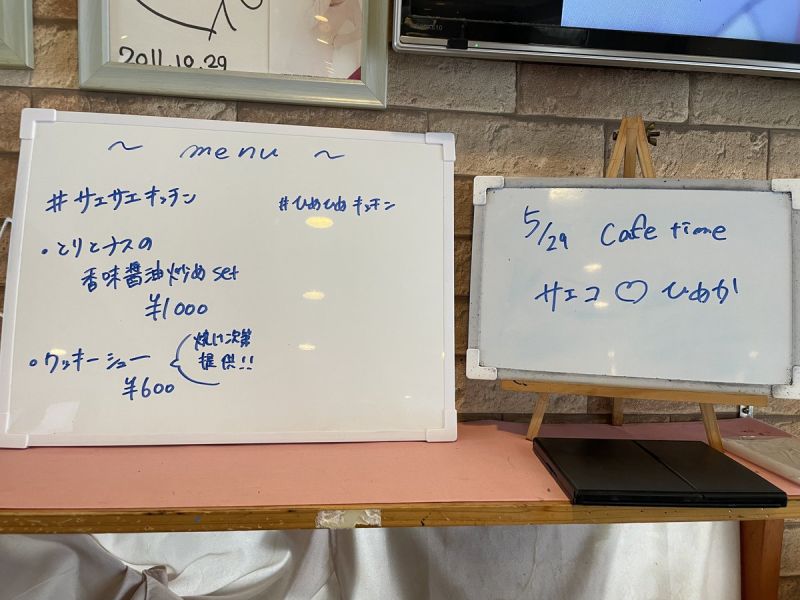 2011.10.29
~ menu ~
#サエサエキッチン
#ひめひめキッチン
・とりとナスの
香味醤油炒め set
¥1000
・クッキーシュー
¥600
焼け次第
提供!!
5/29 Cafe time
サエコ♡ひめか